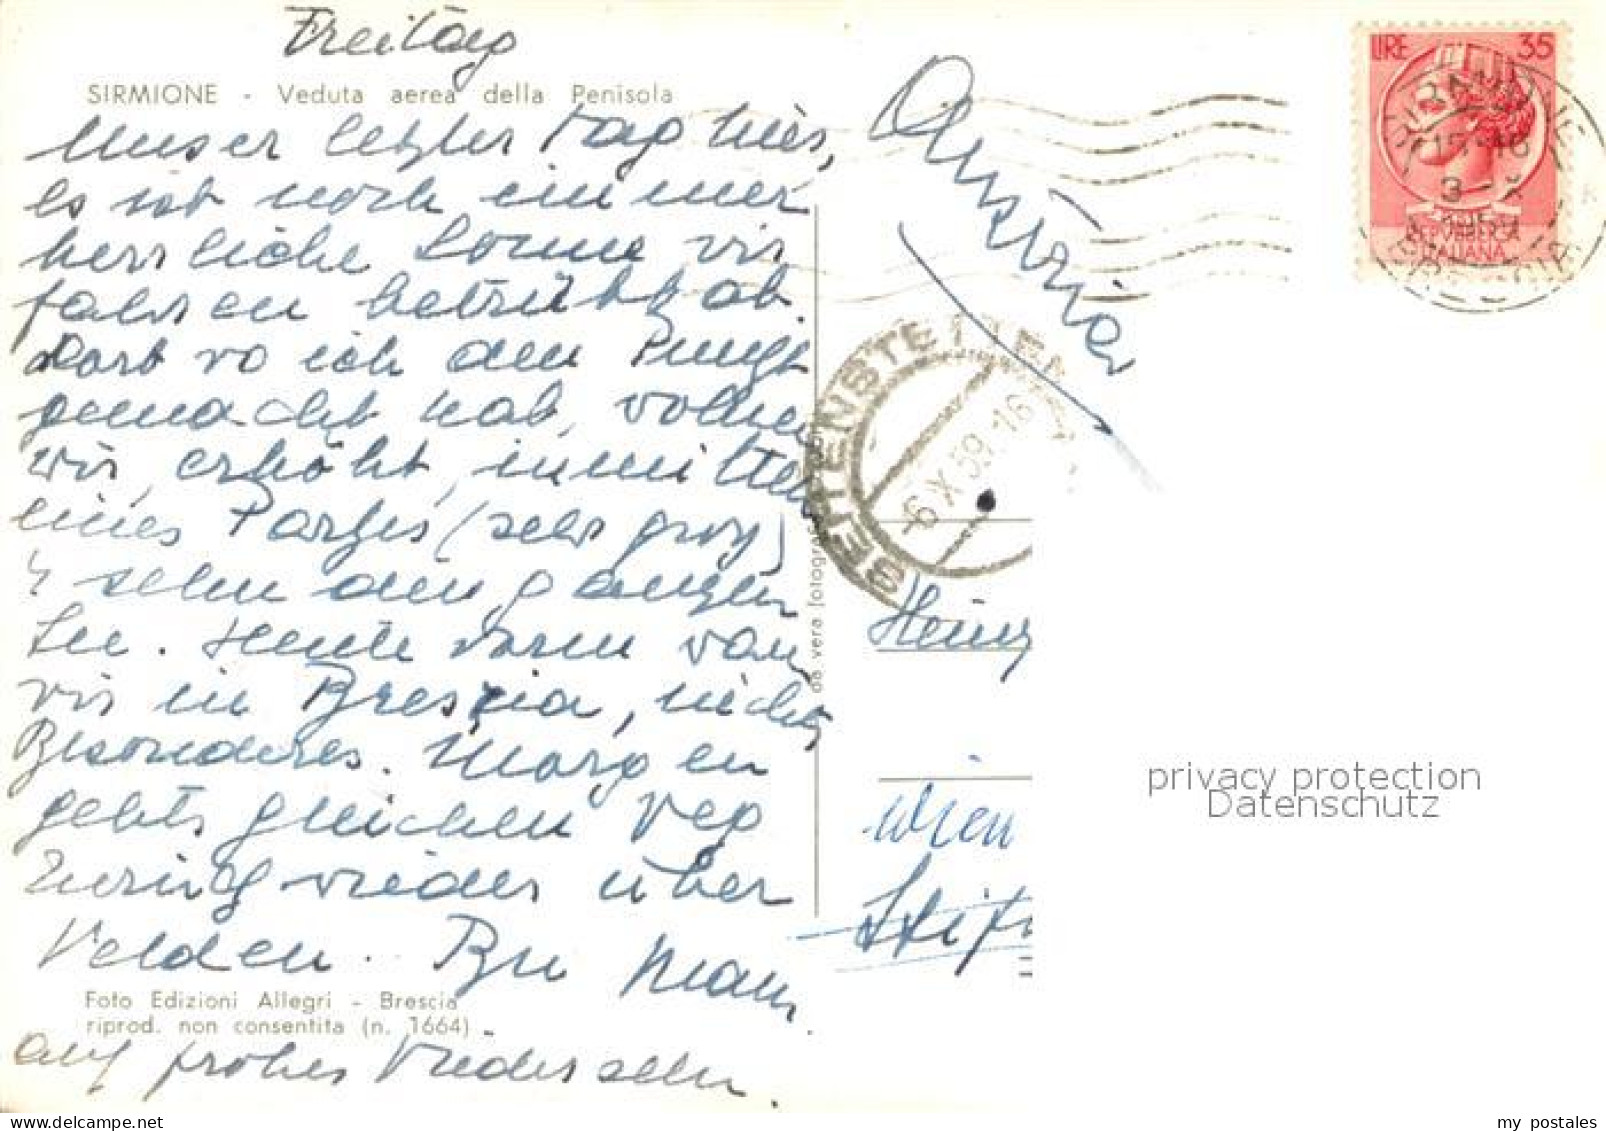 Freitag
SIRMIONE - Veduta aerea della Penisola
Unser letzter Tag hier,
es ist noch immer
herrliche Sonne wir
fahren betrübt ab.
Dort wo ich den Punkt
gemacht hab, wohnen
wir, erhöht, inmitten
eines Parkes, (sehr groß)
sehn den ganzen
See. Heute waren
wir in Brescia, nichts
Besonderes. Morgen
gehts gleichen Weg
zurück wieder über
Velden. Bin
auf frohes Wiedersehn.
Foto Edizioni Allegri - Brescia
riprod. non consentita (n. 1664)
da vera fotografia
Austria
LIRE 35
REPUBBLICA
ITALIANA
15-16
BRESCIA
SEITENSTETTEN
-6.X.59.16
Heinz
Wien
privacy protection
Datenschutz
my postales